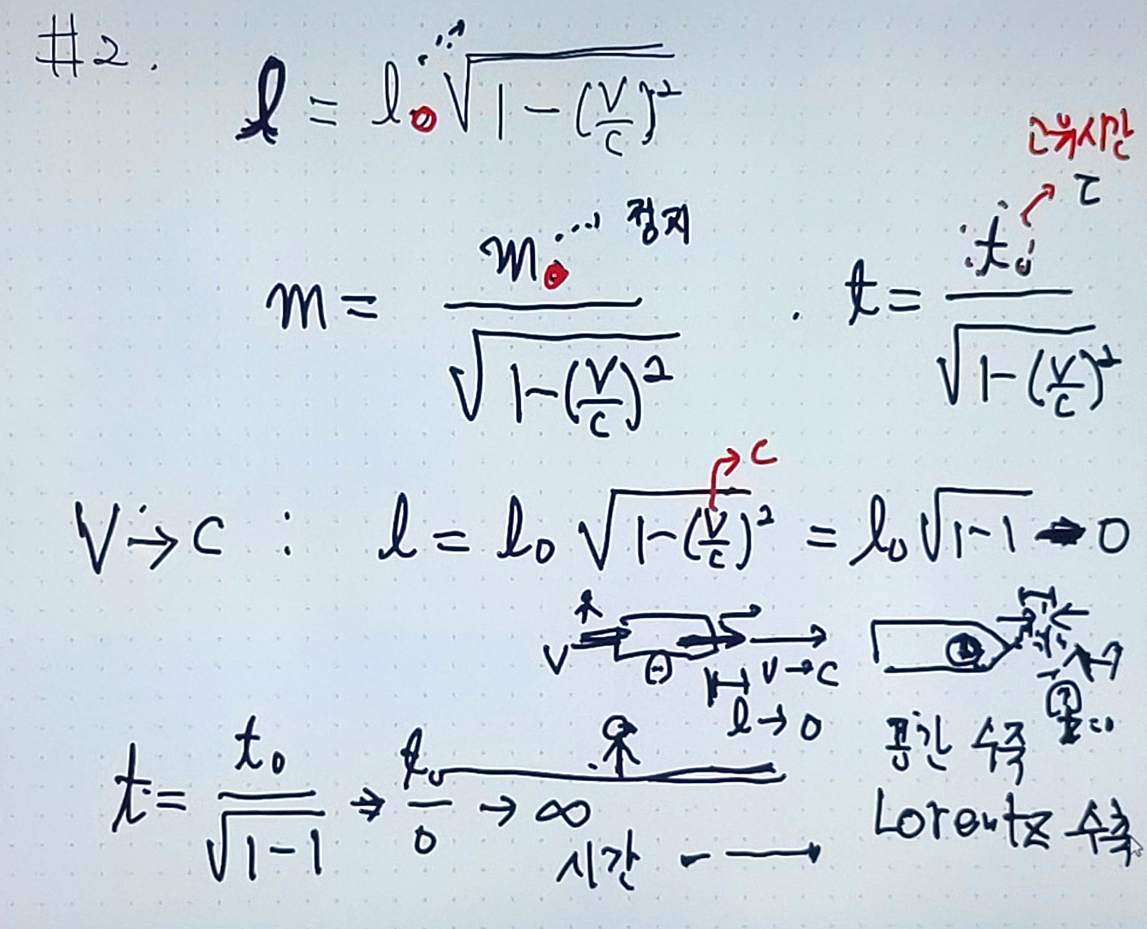 #2.
l = l₀ √(1-(V/c)²)
고유시간
m = m₀ / √(1-(V/c)²) 정지 . t = t₀ / √(1-(V/c)²) τ
V→c : l = l₀ √(1-(V/c)²) = l₀ √(1-1) → 0
c
V V→c
l→0
t = t₀ / √(1-1) → t₀ / 0 → ∞
시간 →
공간 수축
Lorentz 수축